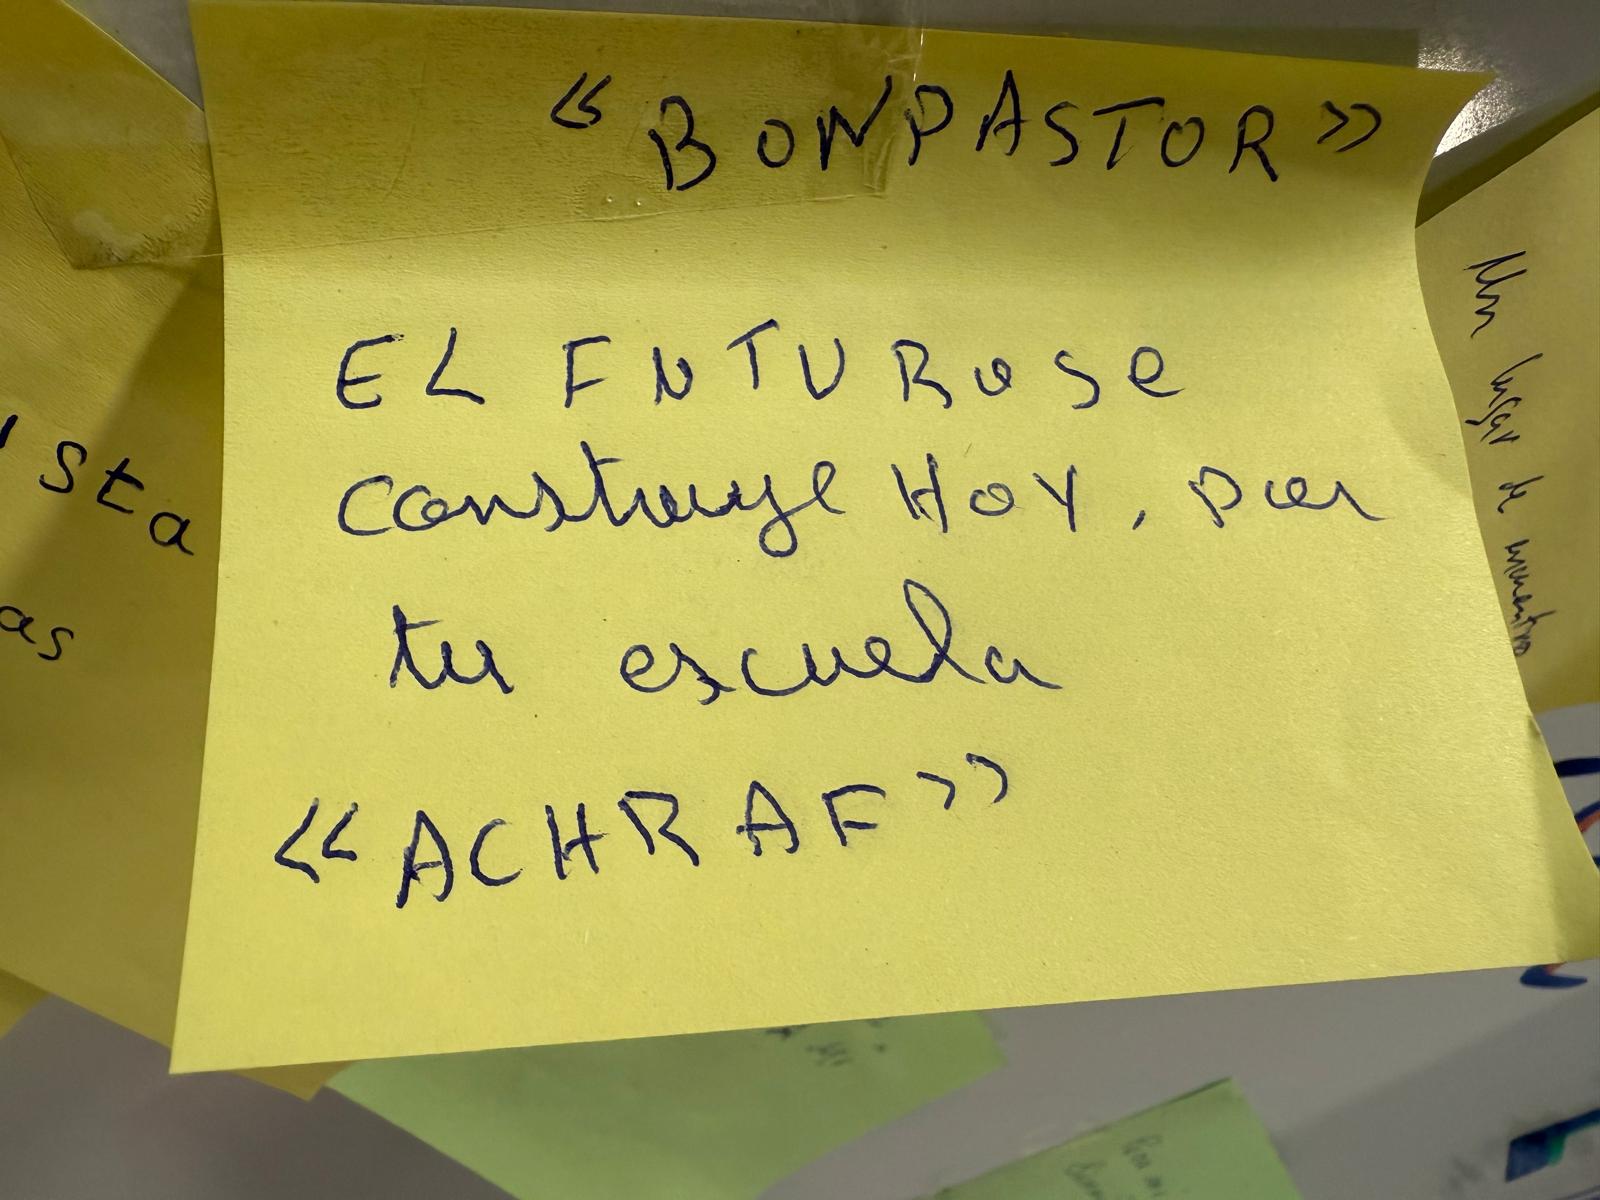 « BONPASTOR »
EL FUTURO SE
construye HOY, por
tu escuela
«ACHRAF»
sta
as
Un lugar de encuentro